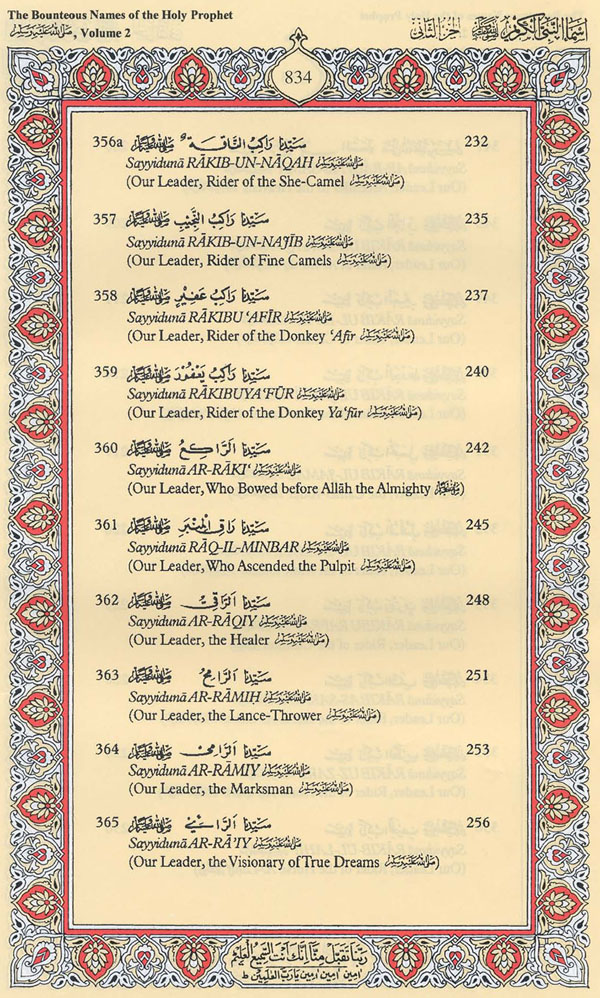 The Bounteous Names of the Holy Prophet
ﷺ, Volume 2
اسماء النبي الكريم ﷺ الجزء الثاني
834
356a سَيِّدُنَا رَاكِبُ النَّاقَةِ ﷺ 232
Sayyidunā RĀKIB-UN-NĀQAH ﷺ
(Our Leader, Rider of the She-Camel ﷺ)
357 سَيِّدُنَا رَاكِبُ النَّجِيْبِ ﷺ 235
Sayyidunā RĀKIB-UN-NAJĪB ﷺ
(Our Leader, Rider of Fine Camels ﷺ)
358 سَيِّدُنَا رَاكِبُ عَفِيْرٍ ﷺ 237
Sayyidunā RĀKIBU ‘AFĪR ﷺ
(Our Leader, Rider of the Donkey ‘Afīr ﷺ)
359 سَيِّدُنَا رَاكِبُ يَعْفُوْرَ ﷺ 240
Sayyidunā RĀKIBUYA‘FŪR ﷺ
(Our Leader, Rider of the Donkey Ya‘fūr ﷺ)
360 سَيِّدُنَا اَلرَّاكِعُ ﷺ 242
Sayyidunā AR-RĀKI‘ ﷺ
(Our Leader, Who Bowed before Allāh the Almighty ﷺ)
361 سَيِّدُنَا رَاقِ الْمِنْبَرِ ﷺ 245
Sayyidunā RĀQ-IL-MINBAR ﷺ
(Our Leader, Who Ascended the Pulpit ﷺ)
362 سَيِّدُنَا اَلرَّاقِيُ ﷺ 248
Sayyidunā AR-RĀQIY ﷺ
(Our Leader, the Healer ﷺ)
363 سَيِّدُنَا اَلرَّامِحُ ﷺ 251
Sayyidunā AR-RĀMIḤ ﷺ
(Our Leader, the Lance-Thrower ﷺ)
364 سَيِّدُنَا اَلرَّامِيُ ﷺ 253
Sayyidunā AR-RĀMIY ﷺ
(Our Leader, the Marksman ﷺ)
365 سَيِّدُنَا اَلرَّائِيُ ﷺ 256
Sayyidunā AR-RĀ’IY ﷺ
(Our Leader, the Visionary of True Dreams ﷺ)
رَبَّنَا تَقَبَّلْ مِنَّا اِنَّكَ اَنْتَ السَّمِيْعُ الْعَلِيْمُ
اٰمين اٰمين اٰمين يَا رَبَّ الْعٰلَمِيْنَ ط